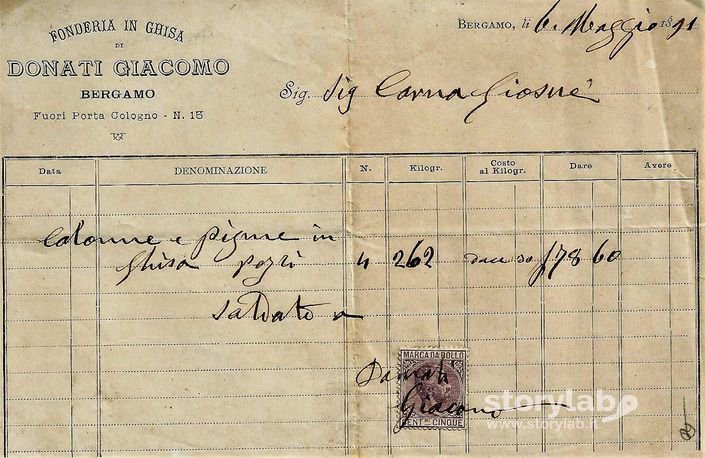 FONDERIA IN GHISA
DI
DONATI GIACOMO
BERGAMO
Fuori Porta Cologno - N. 15
BERGAMO, li 6 Maggio 1891
Sig. Sig Carna Giosuè
Data DENOMINAZIONE N. Kilogr. Costo al Kilogr. Dare Avere
Colonne e pigne in
Ghisa pezzi 4 262 a 30 f 78 60
Saldato
MARCA DA BOLLO
Donati
Giacomo
CENT. MI CINQUE
storylab
www.storylab.it